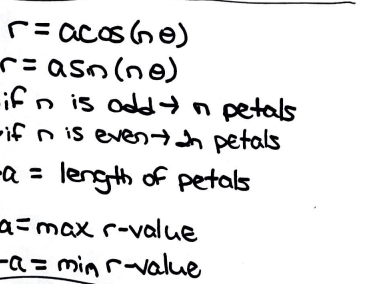 r = acos(nθ)
r = asn(nθ)
if n is odd → n petals
if n is even → 2n petals
-a = length of petals
a = max r-value
-a = min r-value